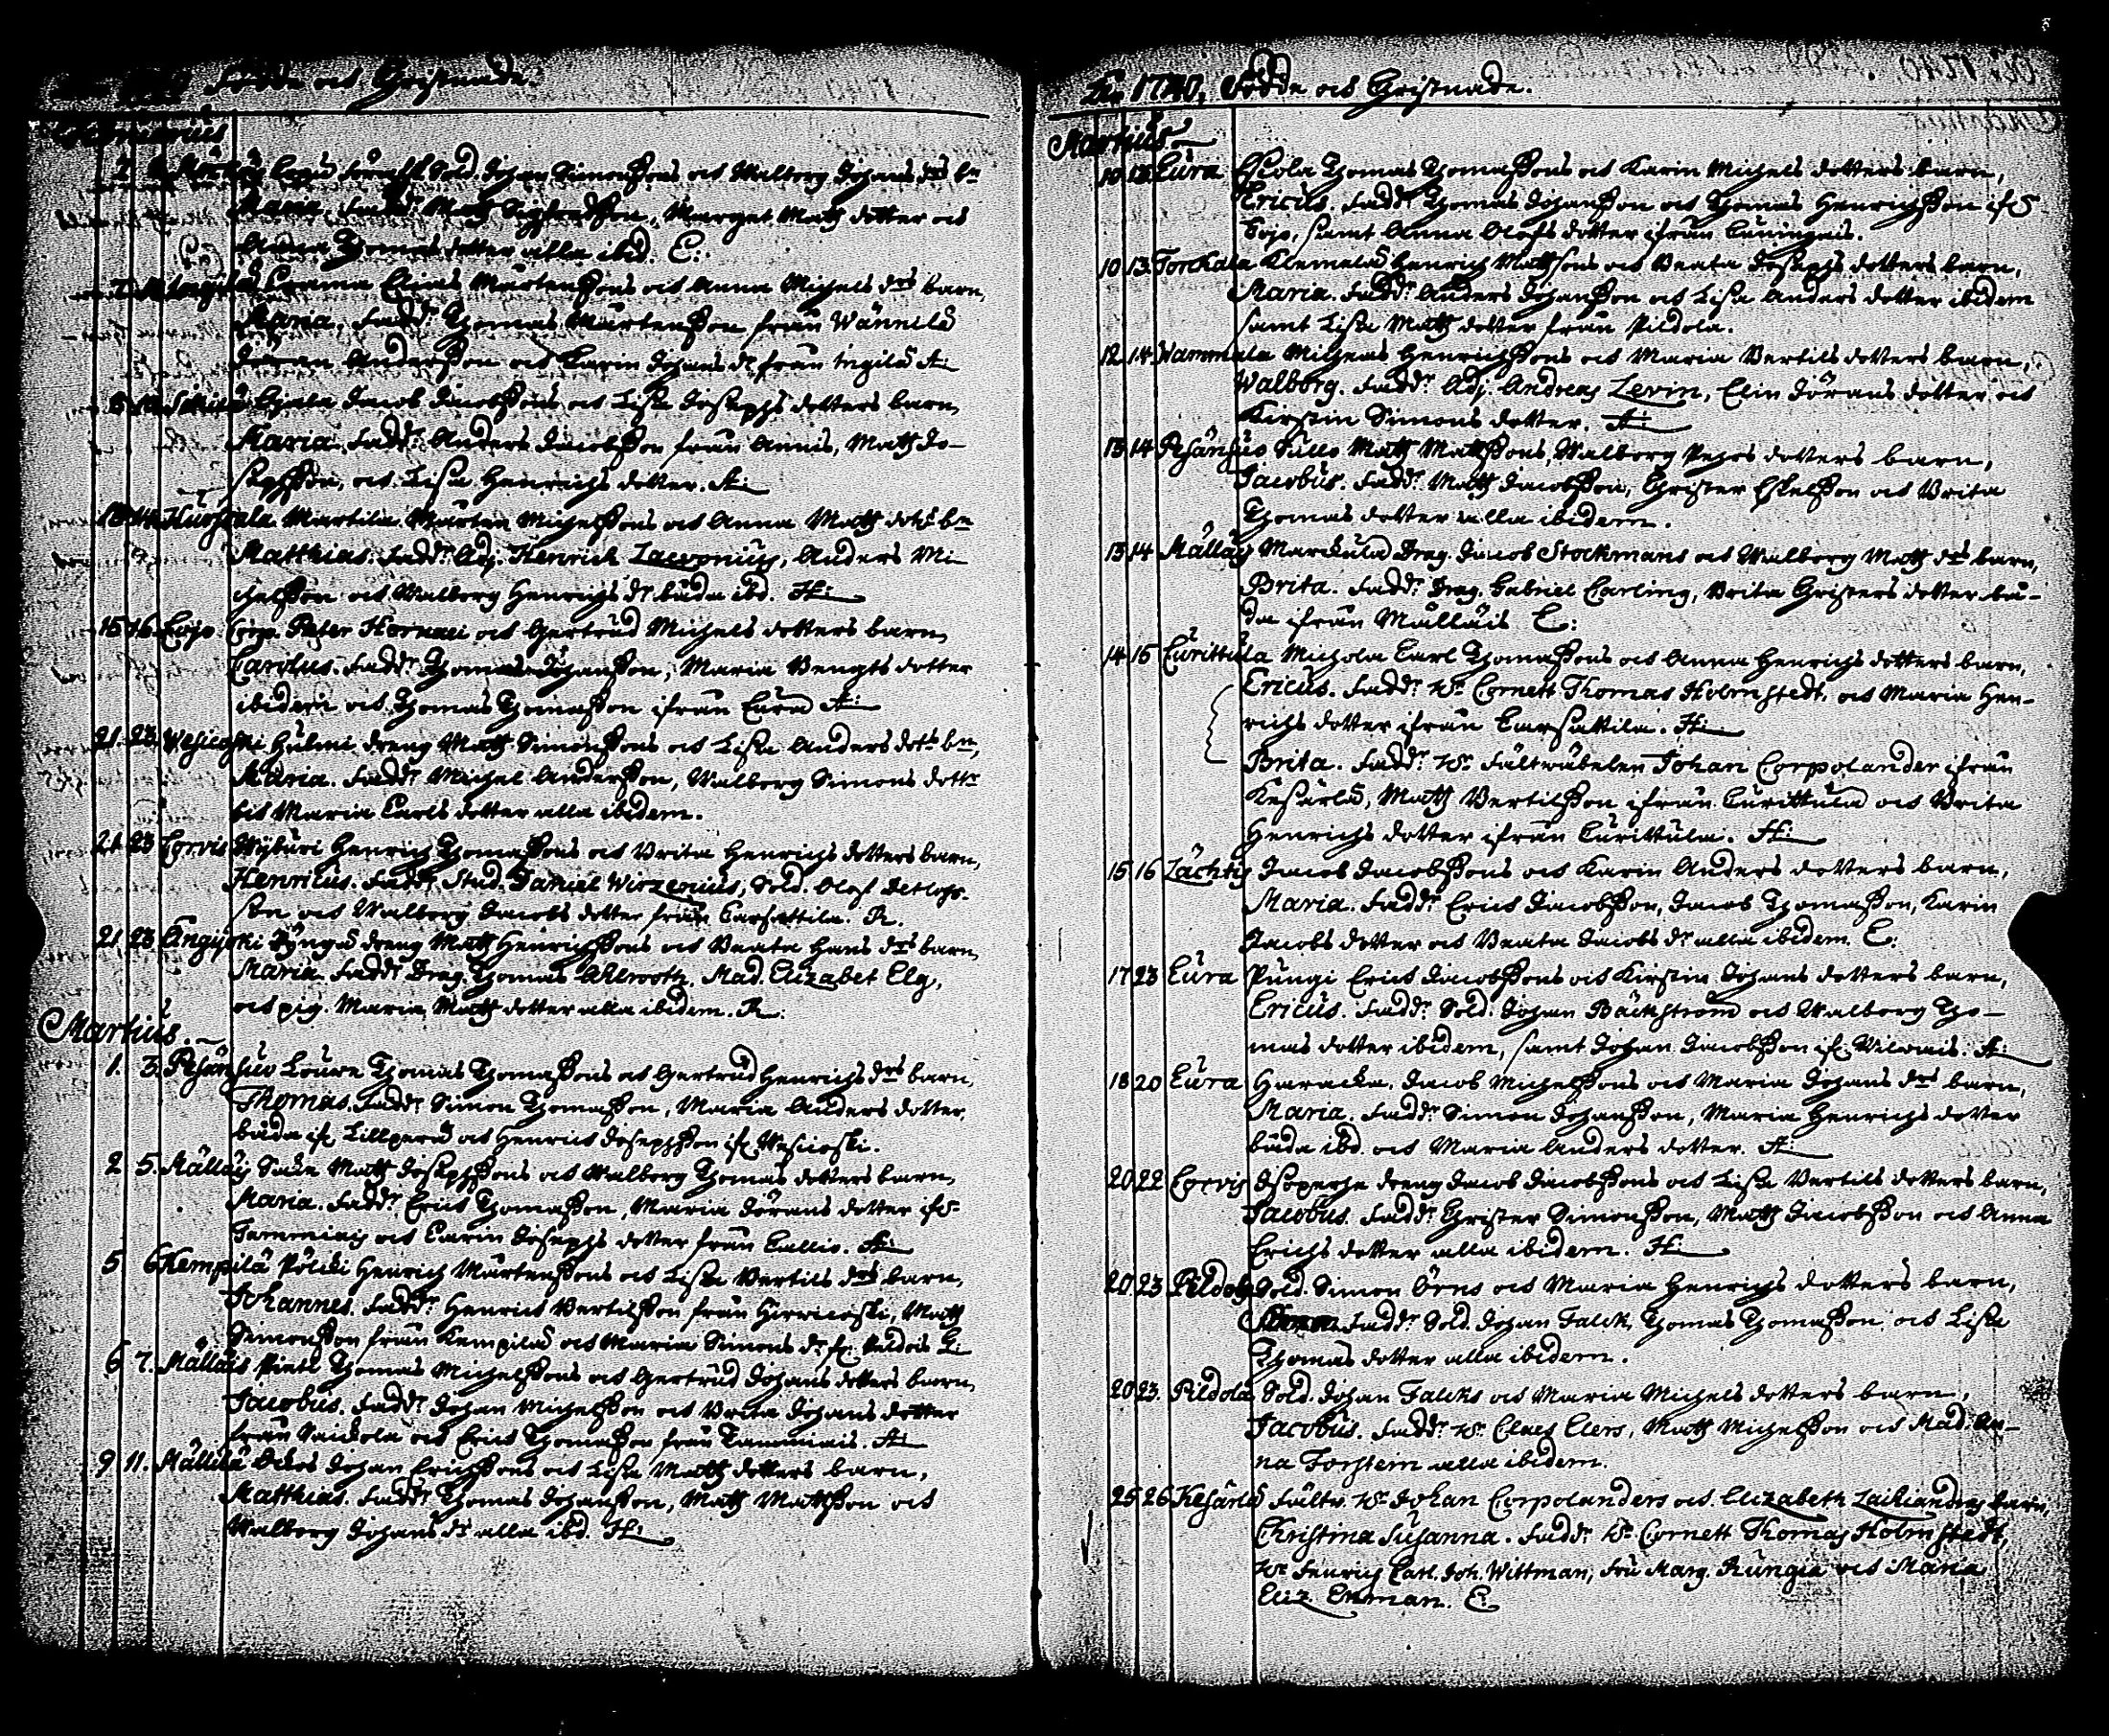 Födde och Christnade.
Sold. Johan Simonssons och Walborg Johans drs bn
Maria. Fadd: Matts Sigfredsson, Marget Matts dotter och
Anna Thomas dotter alla ibid. E:
Elias Mårtenssons och Anna Michels drs barn,
Maria, Fadd: Thomas Mårtensson från Wännilä
Jöran Andersson och Karin Johans dr från Ingilä A:
Jacob Jacobssons och Lisa Josephs dotters barn,
Maria. Fadd: Anders Jacobsson från Annis, Matts Jo-
sephsson, och Lisa Henrichs dotter. A:
Martila Mårten Michelssons och Anna Matts dotrs bn
Matthias. Fadd: Adj. Henrich Lacopnius, Anders Mi-
chelsson och Walborg Henrichs dr båda ibd. H:
15 16 Cojo Corp. Peter Hornaei och Gertrud Michels dotters barn,
Carolus. Fadd: Thomas Johansson, Maria Bengts dotter
ibidem och Thomas Thomasson ifrån Eura A:
21 23 Wesicoski Hulmi dreng Matts Simonssons och Lisa Anders dotrs bn,
Maria. Fadd: Michel Andersson, Walborg Simons dottr
och Maria Carls dotter alla ibidem.
21 23 Corvis Wijluri Henrich Thomassons och Brita Henrichs dotters barn,
Henricus. Fadd: Stud. Daniel Wirzenius, Sold. Olof Detlofs-
son och Walborg Jacobs dotter från Carsattila. R.
21 23 Dyngä dreng Matts Henrichssons och Beata Hans drs barn,
Maria. Fadd: Drag. Thomas Ahlrooth, Mad. Elizabet Elg,
och pig. Maria Matts dotter alla ibidem. R.
Martius.
1. 3. Pesänsuo Louve Thomas Thomassons och Gertrud Henrichs drs barn,
Thomas. Fadd: Simon Thomasson, Maria Anders dotter
båda if. Lillperä och Henrich Josephsson if. Wesicoski.
2 5. Mälläis Sake Matts Josephssons och Walborg Thomas dotters barn,
Maria. Fadd: Erich Thomasson, Maria Jörans dotter ifrå
Tammiais och Carin Josephs dotter från Callio. A:
5 6 Kempilä Pölcki Henrich Mårtenssons och Lisa Bertils drs barn,
Johannes. Fadd: Henrich Bertilsson från Hirwicoski, Matts
Simonsson från Kempilä och Maria Simons dr fr. E:
6 7. Mälläis Thomas Michelssons och Gertrud Johans dotters barn,
Jacobus. Fadd: Johan Michelsson och Brita Johans dotter
från Saickola och Erich Thomasson från Tammiais. A:
9 11. Johan Erichssons och Lisa Matts dotters barn,
Matthias. Fadd: Thomas Johansson, Matts Mattsson och
Walborg Johans dr alla ibd. H:
Ao 1740, Födde och Christnade.
Martius
10 13 Eura Eskola Thomas Thomassons och Karin Michels dotters barn,
Ericus. Fadd: Thomas Johansson och Thomas Henrichsson ifrå
Cojo, samt Anna Olofs dotter ifrån Cuningais.
10 13. Torckala Klemelä Henrich Mattsons och Beata Josephs dotters barn,
Maria. Fadd: Anders Johansson och Lisa Anders dotter ibidem
samt Lisa Matts dotter från Pildola.
12. 14. Wammala Michels Henrichssons och Maria Bertils dotters barn,
Walborg. Fadd: Adj. Andreas Levin, Elin Jörans dotter och
Kirstin Simons dotter. A:
13 14 Pesänsuo Sullo Matts Mattssons, Walborg Pehrs dotters barn,
Jacobus. Fadd: Matts Jacobsson, Christer Eskelsson och Brita
Thomas dotter alla ibidem.
13 14 Mälläis Marckula Drag. Jacob Stockmans och Walborg Matts drs barn,
Brita. Fadd: Drag. Gabriel Carling, Brita Christers dotter bå-
da ifrån Mälläis E:
14 15 Curittula Michola Carl Thomassons och Anna Henrichs dotters barn,
Ericus. Fadd: Hr Cornett Thomas Holmstedt, och Maria Hen-
richs dotter ifrån Carsattila. H:
Brita. Fadd: Hr Fältwäbelen Johan Corpolander ifrån
Kesärlä, Matts Bertilsson ifrån Curittula och Brita
Henrichs dotter ifrån Curittula. H:
15 16 Lächtis Jacob Jacobssons och Karin Anders dotters barn,
Maria. Fadd: Erich Jacobsson, Jacob Thomasson, Karin
Jacobs dotter och Beata Jacobs dr alla ibidem. E:
17 23 Eura Pungi Erich Jacobssons och Kirstin Johans dotters barn,
Ericus. Fadd: Sold. Johan Bäckström och Walborg Tho-
mas dotter ibidem, samt Johan Jacobsson if. Wilwais. A:
18 20 Eura Haracka Jacob Michelssons och Maria Johans drs barn,
Maria. Fadd: Simon Johansson, Maria Henrichs dotter
båda ibd. och Maria Anders dotter. A:
20 22 Corvis Isoperhe dreng Jacob Jacobssons och Lisa Bertils dotters barn,
Jacobus. Fadd: Christer Simonsson, Matts Jacobsson och Anna
Erichs dotter alla ibidem. H:
20 23 Pildola Sold. Simon Örns och Maria Henrichs dotters barn,
Fadd: Sold. Johan Falck, Thomas Thomasson och Lisa
Thomas dotter alla ibidem.
20 23. Pildola Sold. Johan Falcks och Maria Michels dotters barn,
Jacobus. Fadd: Hr Claes Clers, Matts Michelsson och Mad. An-
na Forstein alla ibidem.
25 26 Kesärlä Fältv. Hr Johan Corpolanders och Elizabeth Laihiandras barn,
Christina Susanna. Fadd: Hr Cornett Thomas Holmstedt,
Hr Fenrich Carl Joh. Wittman, Fru Marg. Rungia och Maria
Eliz. Enman. E.